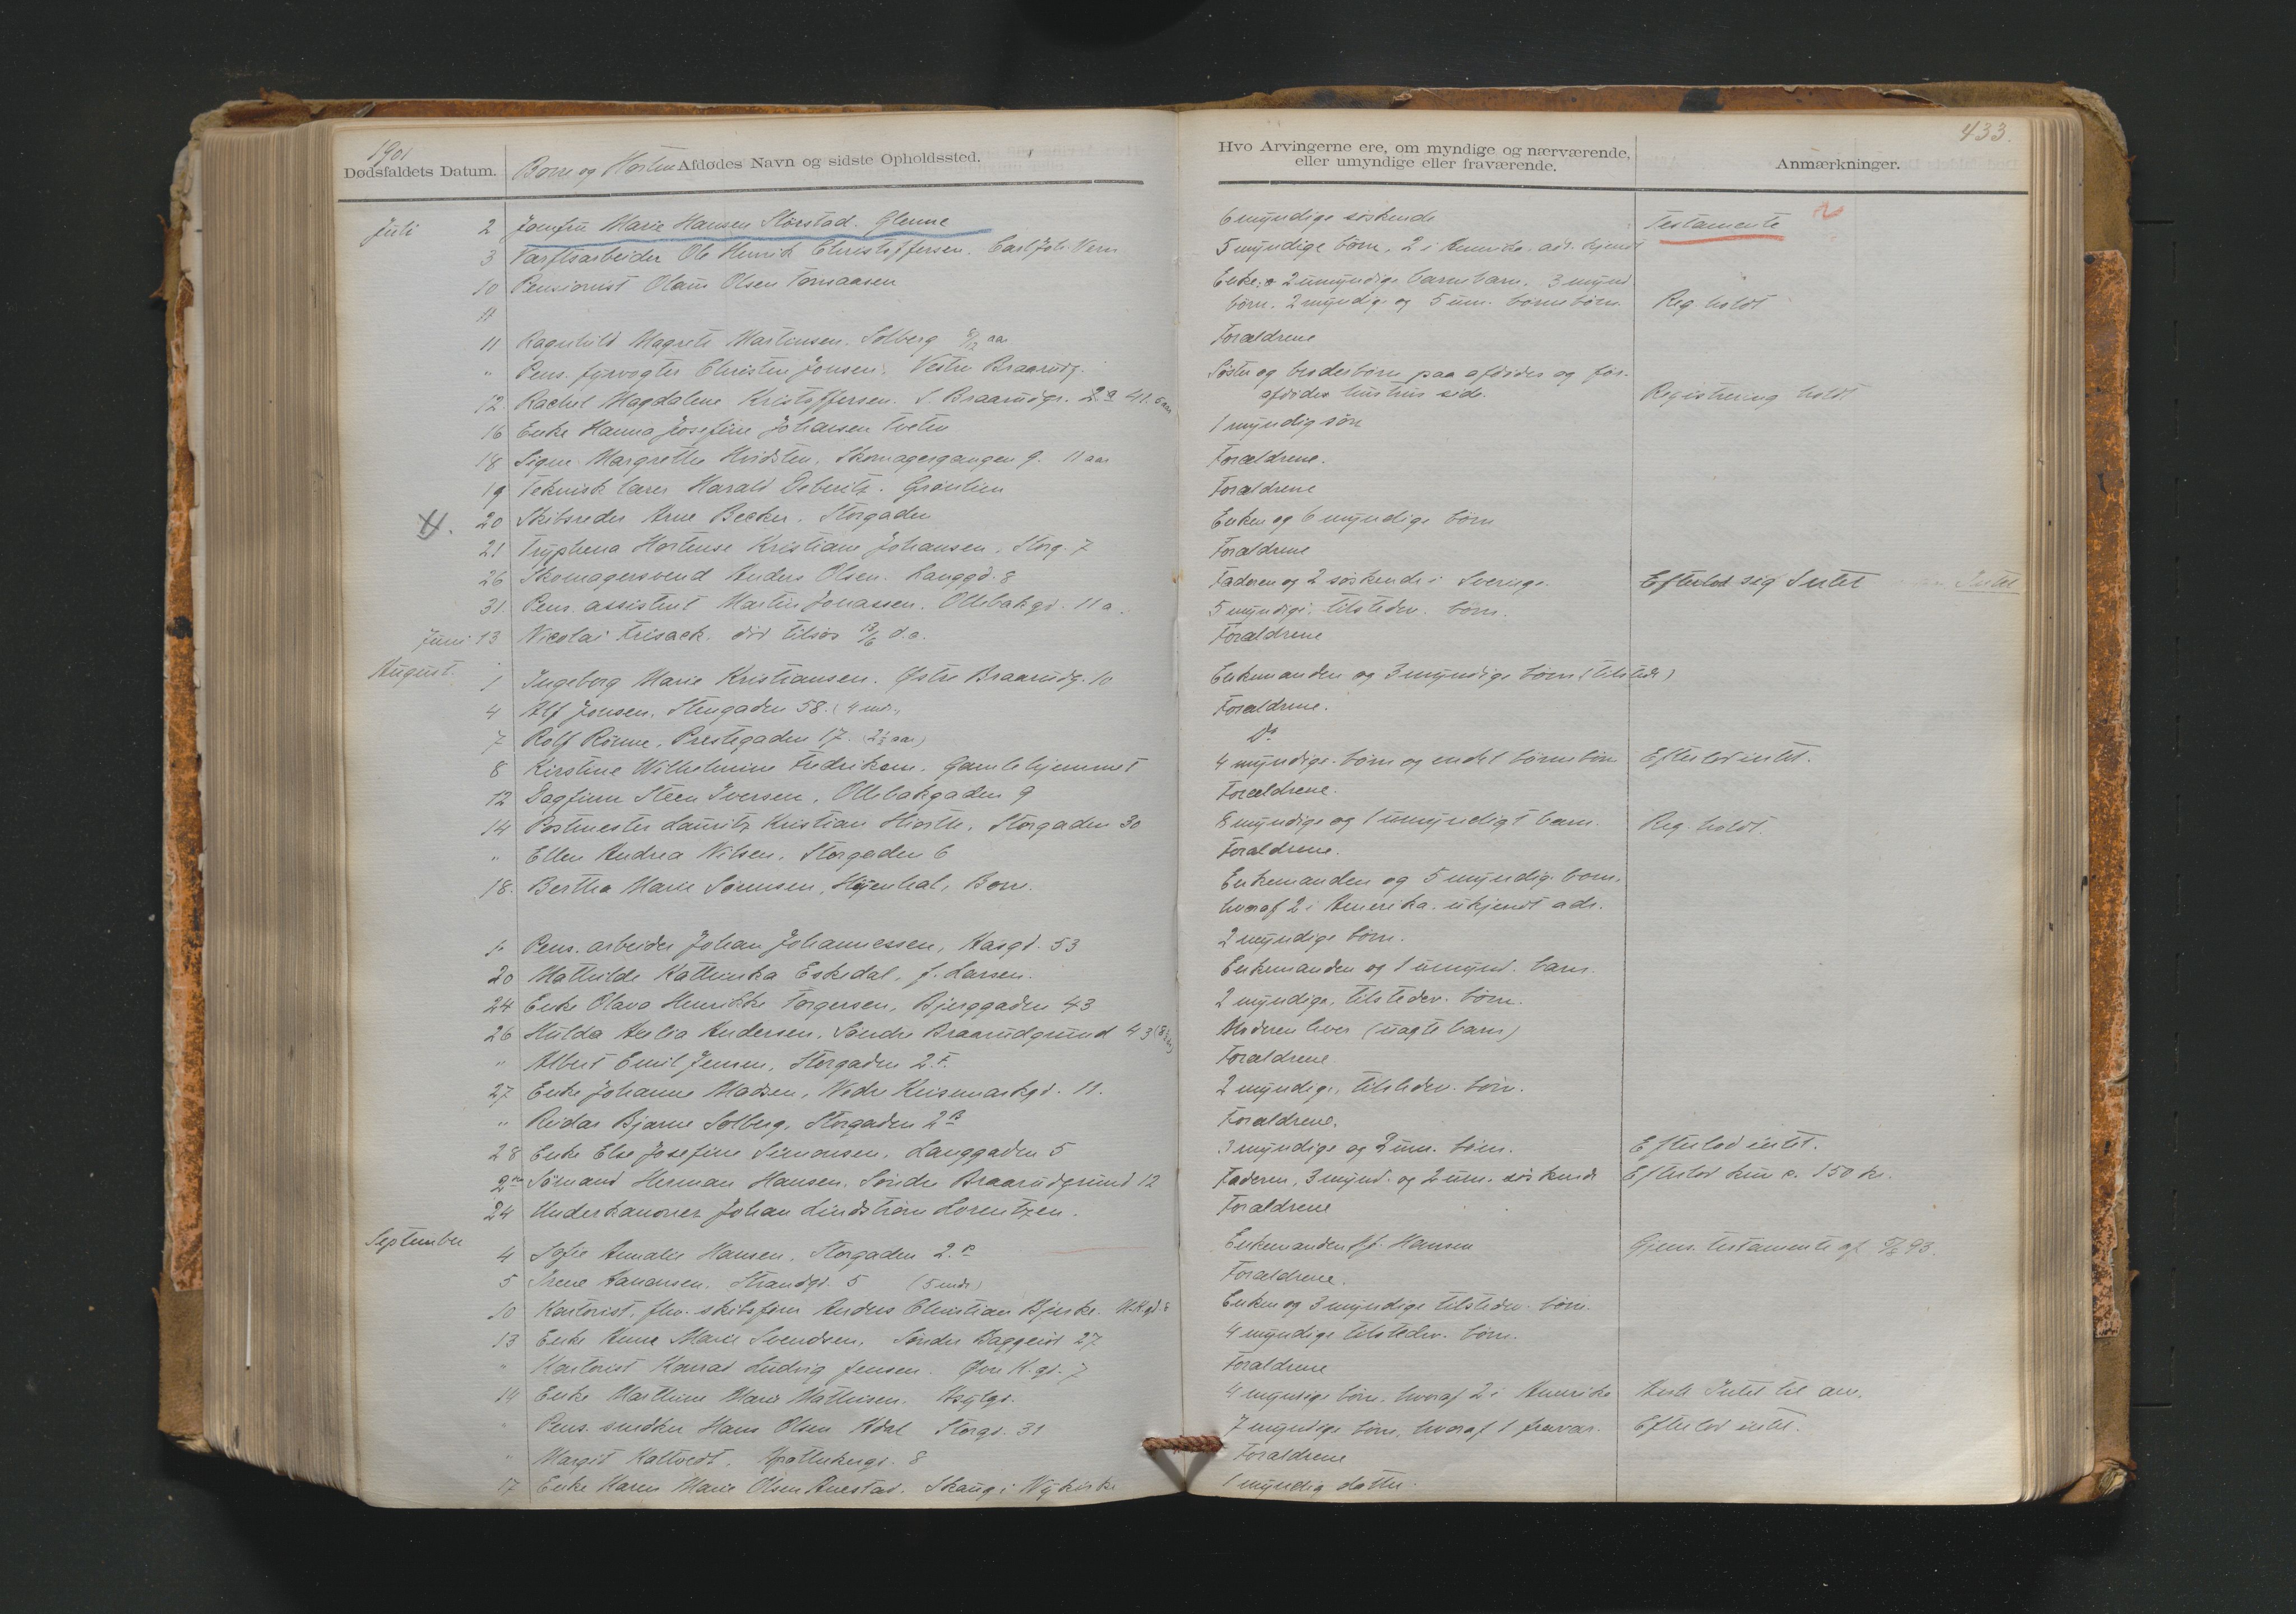 1901
433.
Dødsfaldets Datum. Borre og Horten Afdødes Navn og sidste Opholdssted. Hvo Arvingerne ere, om myndige og nærværende,
eller umyndige eller fraværende. Anmærkninger.
Juli 2 Jomfru Marie Hansen Glenne 6 myndige søskende Testamente
3 Værftsarbeider Ole Henrik Christoffersen. Carl Joh. Vern 5 myndige børn, 2 i Amerika
10 Pensionist Olaus Olsen Enke 2 umyndige barnebarn. 3 mynd
børn. 2 myndige og 5 um. børnebørn. Reg. holdt
11
11 Ragnhild Magrete Martinsen. Solberg 8/12 aar Forældrene
" Pens. fyrvogter Christen Jonsen. Vestre Braarudg. Søster og broderbørn paa afdødes og for-
12 Rachel Magdalene Kristoffersen. S. Braarudgr. 41. afdødes hustrus side. Registrering holdt
16 Enke Hanna Josefine Johansen Tveten 1 myndig søn
18 Signe Margrethe Hvidsten, Skomagergangen 9. 11 aar Forældrene.
19 Teknisk lærer Harald Deberitz. Grønlien Forældrene
20 Skibsreder Arne Becker. Storgaden Enken og 6 myndige børn
21 Tryphena Hortense Kristiane Johansen, Storg. 7 Forældrene
26 Skomagersvend Anders Olsen. Langgd. 8 Faderen og 2 søskende i Sverige. Efterlod sig Intet
31. Pens. assistent Martin Jonassen. Ollebakgd. 11 a. 5 myndige, tilstedev. børn.
Juni 13 Nicolai Frisack. død tilsøs 13/6 d.a. Forældrene
August. 1 Ingeborg Marie Kristiansen. Østre Braarudg. 10 Enkemanden og 3 myndige børn (tilstede)
4 Alf Jonsen, Stengaden 58. (4 md.) Forældrene.
7 Rolf Rønne, Prestegaden 17. (2½ aar) Do
8 Kirstine Wilhelmine Fredriksen. Gamlehjemmet 4 myndige børn og endel børnebørn Efterlod intet.
12 Dagfinn Steen Iversen, Ollebakgaden 9 Forældrene.
14 Postmester Lauritz Kristian Hiorth. Storgaden 30 8 myndige og 1 umyndigt barn. Reg. holdt.
" Ellen Andrea Nilsen. Storgaden 6 Forældrene.
18. Bertha Marie Sørensen, Borre. Enkemanden og 5 myndige børn,
hvoraf 2 i Amerika. ukjendt adr.
Pens. arbeider Johan Johannessen, 53 2 myndige børn.
20 Mathilde Kathinka Eskedal, f. Larsen. Enkemanden og 1 umynd. barn.
24 Enke Olava Henrikke Torgersen, Bjerggaden 43 2 myndige, tilstedev. børn.
26 Hulda Andersen. Søndre Braarudgrund 43 Moderen lever (uægte barn)
" Albert Emil Jensen. Storgaden 2 Forældrene
27 Enke Johanne Madsen, Nedre Keisemarkgd. 11. 2 myndige, tilstedev. børn.
" Reidar Bjarne Solberg. Storgaden 2 B Forældrene.
28 Enke Else Josefine Simonsen, Langgaden 5 3 myndige og 3 um. børn. Efterlod intet.
Sømand Herman Hansen. Søndre Braarudgrund 12 Faderen, 3 mynd. og 2 um. søskende Efterlod kun c. 150 kr.
24 Underkanoner Johan Lindstrøm Lorentzen. Forældrene
September 4 Sofie Hansen, Storgaden 2. Enkemanden Hansen Gjens. testamente af 93.
5 Strandgd. 5 (5 mdr) Forældrene.
10 Kontorist, fhv. skibsfører Anders Christian Bjerke. Enken og 3 myndige tilstedev. børn.
13 Enke Anne Marie Svendsen, Søndre 27 4 myndige tilstedev. børn.
" Kontorist Konrad Ludvig Jensen. Øvre K. gd. 7 Forældrene
14 Enke Marthine Marie Mathisen. 4 myndige børn, hvoraf 2 i Amerika Intet til arv.
" Pens. snedker Hans Olsen Storgd. 31 7 myndige børn, hvoraf 1 fravær. Efterlod intet.
" Margit Kaltvedt. Apothekergd. 8 Forældrene
17 Enke Karen Marie Olsen Skaug i Nykirke 1 myndig datter.